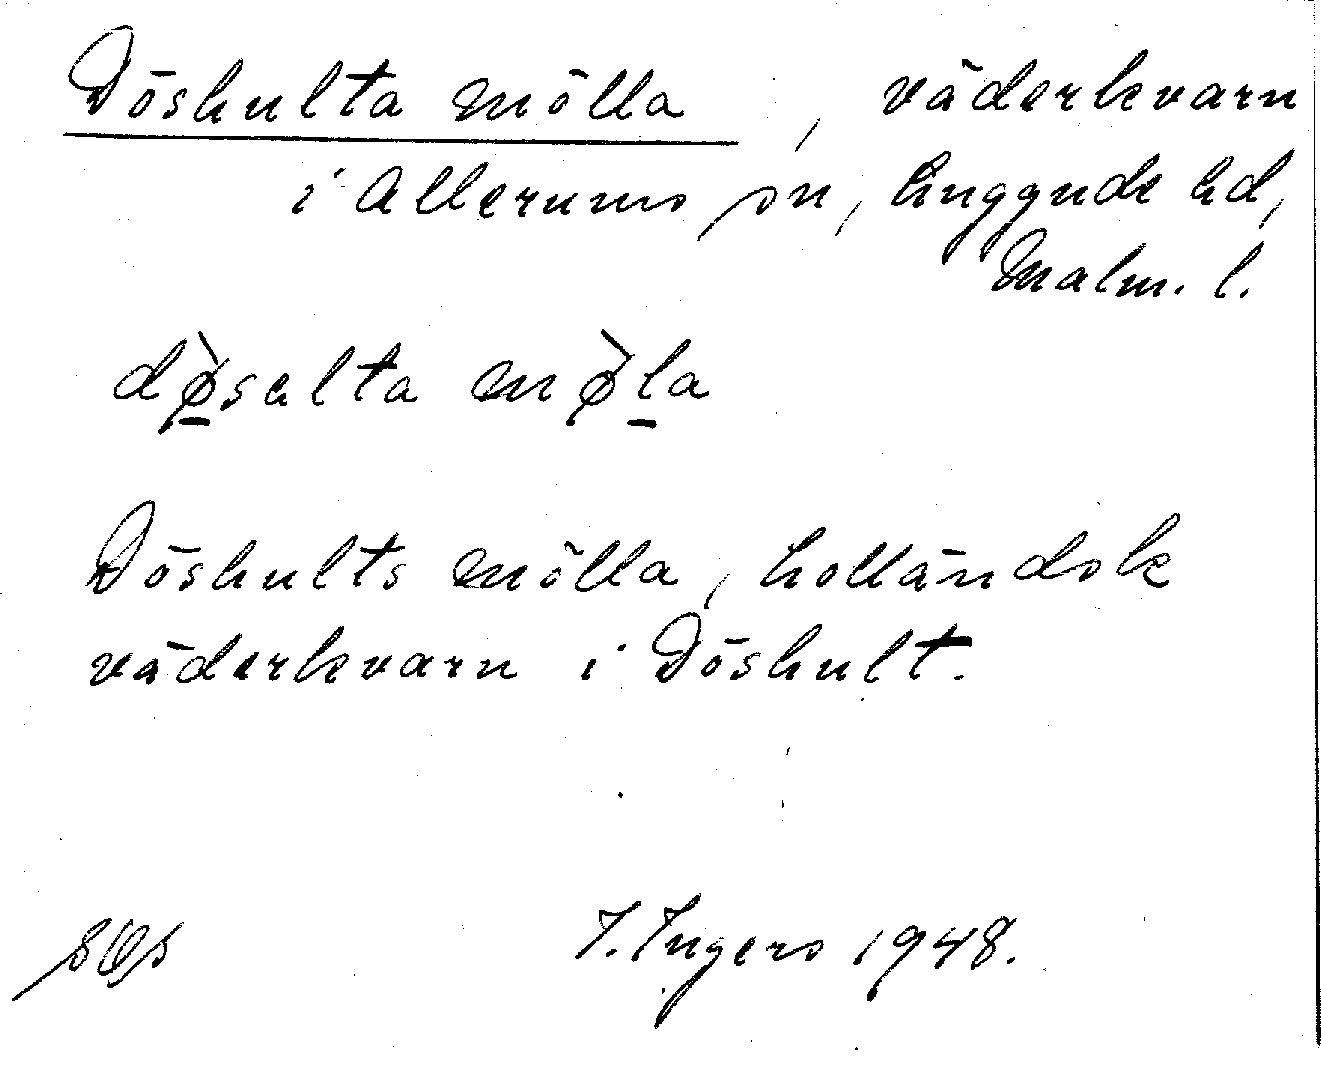 Döshulta mölla, väderkvarn
i Allerums sn, Luggude hd,
Malm. l.
dø̱̀salta mø̀ḻa
Döshults mölla, holländsk
väderkvarn i Döshult.
I. Ingers 1948.